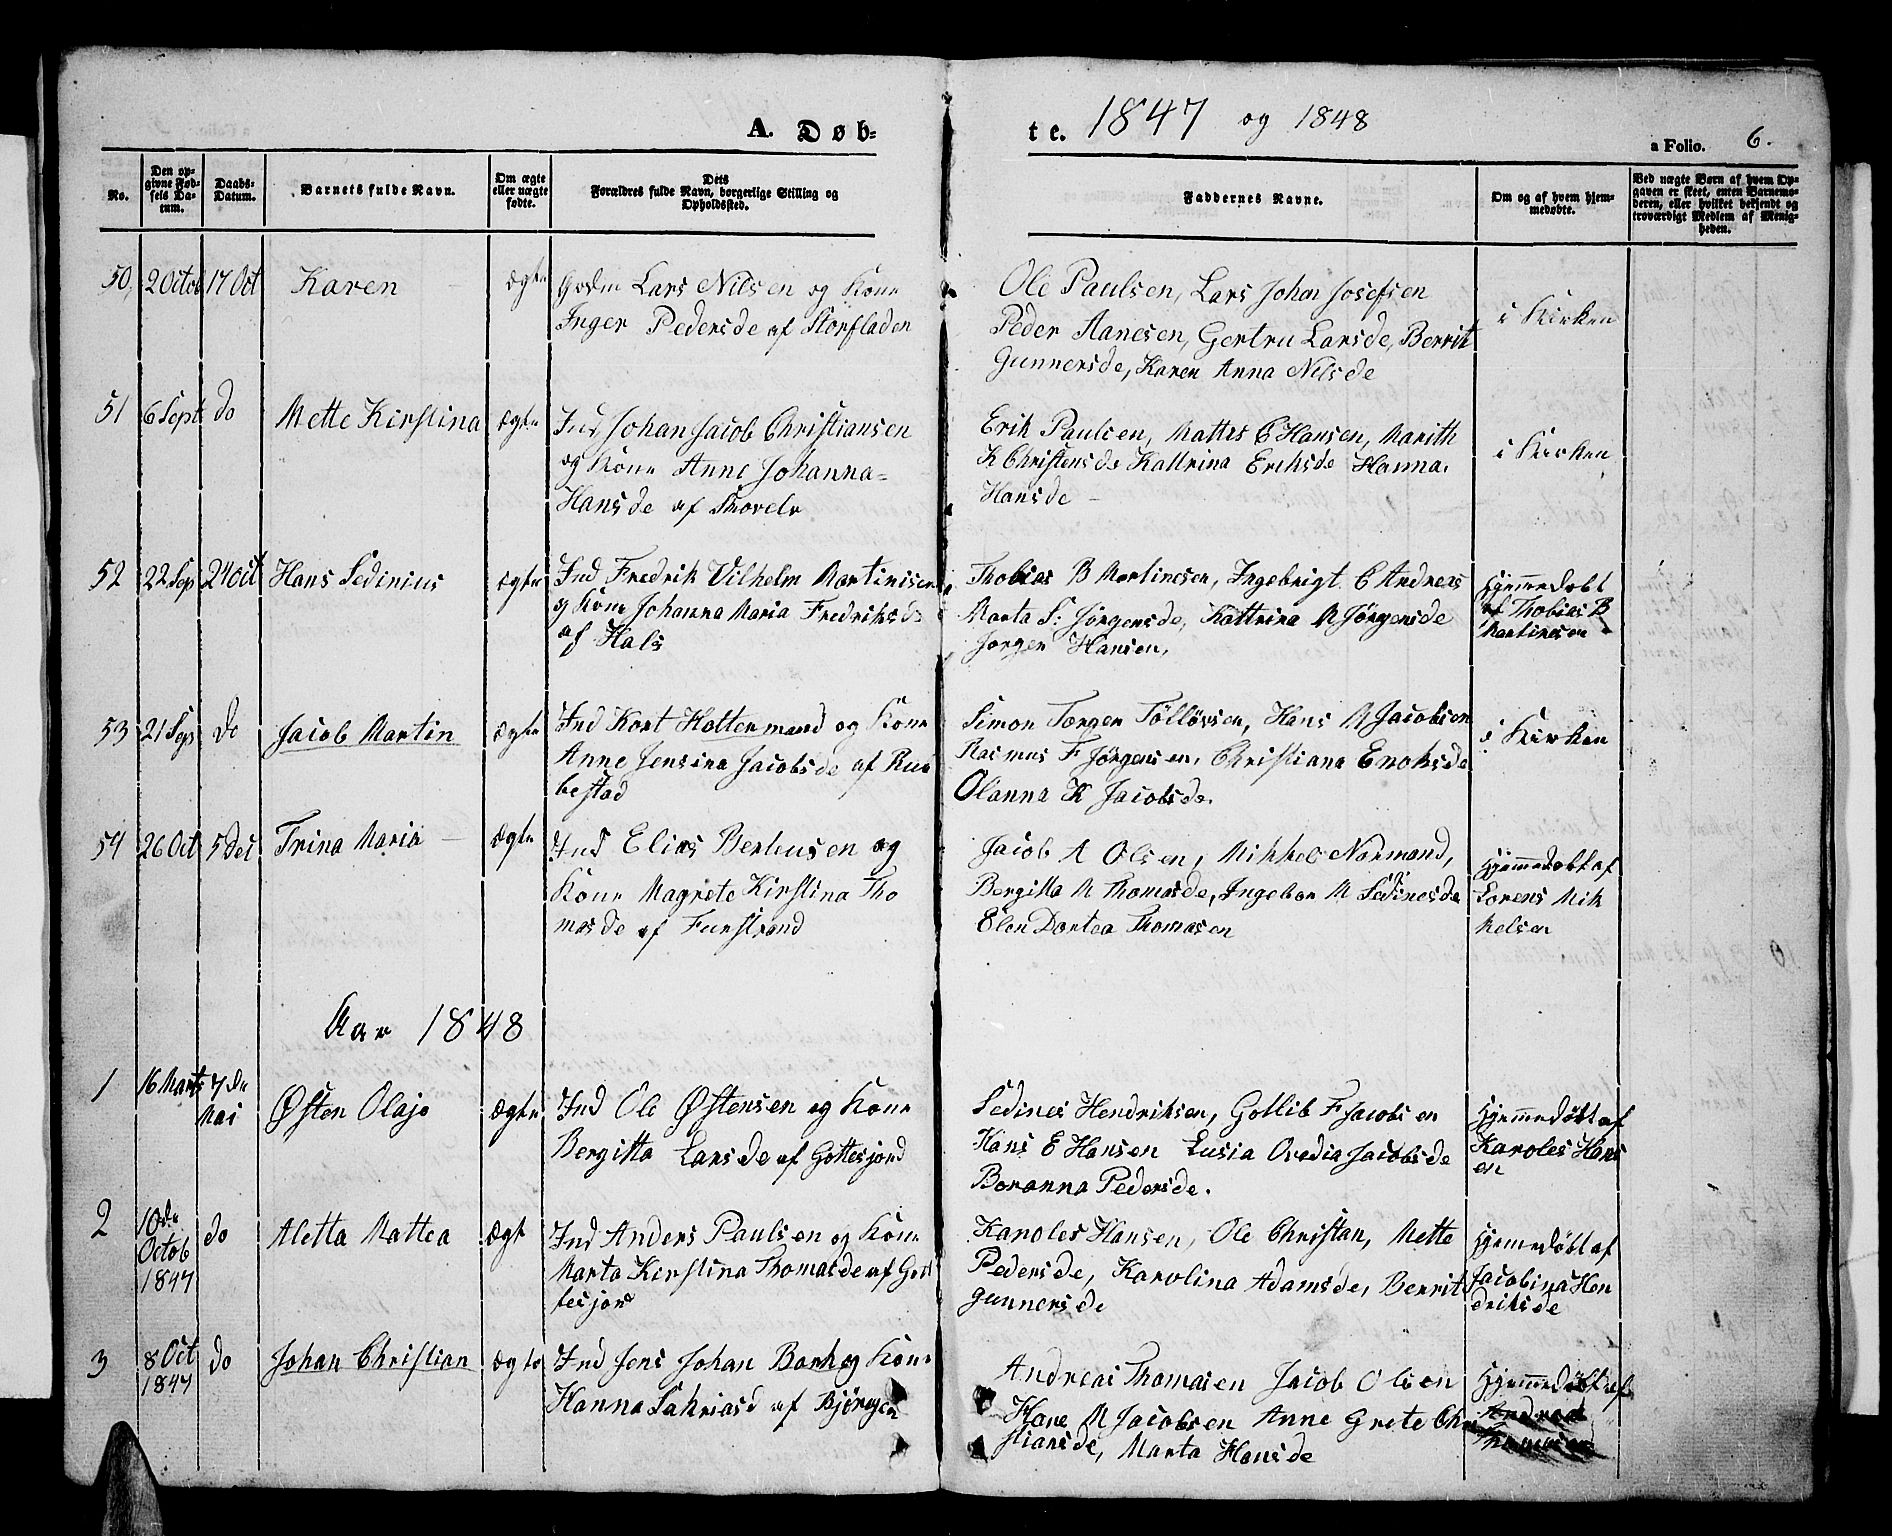 A. Døb-
te. 1847 og 1848
a Folio. 6.
No.
Den op-
givne Fød-
sels Da-
tum.
Daabs-
Datum.
Barnets fulde Navn.
Om ægte
eller uægte
fødte.
Dets
Forældres fulde Navn, borgerlige Stilling og
Opholdssted.
Faddernes Navne.
Om og af hvem hjem-
medøbte.
Ved uægte Børn af hvem Op-
gaven er skeet, enten Barnemo-
deren, eller hvilket bekjendt og
troværdigt Medlem af Menig-
heden.
50, 2 Octob 17 Oct Karen ægte
Lars Nilsen og Kone
Inger Pedersde af Storfladen
Ole Paulsen, Lars Johan Josefsen
Peder Aanesen, Gertru Larsde, Berrit
Gunnersde, Karen Anna Nilsde
i Kirken
51 6 Sept do Mette Kirstina ægte
Ind Johan Jacob Christiansen
og Kone Anne Johanna=
Hansde af
Erik Paulsen, Mattes C Hansen, Marith
K Christensde Kattrina Eriksde Hanna
Hansde -
i Kirken
52 22 Sep 24 oct Hans Sedinius ægte
Ind Fredrik Vilhelm Martinisen
og Kone Johanna Maria Fredriksde
af Hals
Thobias B Martinesen, Ingebrigt C Andreas
Marta S: Jörgensde, Kattrina M Jörgensde
Jorgen Hansen,
Hjemmedøbt
af Thobias B
Martinesen
53 21 Sep do Jacob Martin ægte
Ind Kort Hottermand og Kone
Anne Jensina Jacobsde af Rub
bestad
Simon Torger Töllövsen, Hans M Jacobsen
Rasmus F Jörgensen, Christiana Enoksde
Olanna K Jacobsde.
i Kirken
54 26 Oct 5 Des Trina Maria ægte
Ind Elias Berteusen og
Kone Magrete Kirstina Tho
masde af Furstrand
Jacob A Olsen, Mikkel Normand,
Bergitta M Thomasde, Ingebor M Sedinesde
Elen Dortea Thomasen
Hjemmedøbt af
Lorens Mik
kelsen
Aar 1848
1 16 Marts 7 de
Mai
Østen Olaje ægte
Ind Ole Østensen og Kone
Bergitta Larsde af Gottesjord
Sedines Hendriksen, Gotlib F Jacobsen
Hans E Hansen Lusia Ovedia Jacobsde
Boranna Pedersde.
Hjemmedøbt af
Karoles Hans
en
2 10 de
Octob
1847
do Aletta Mattea ægt
Ind Anders Paulsen og Kone
Marta Kirstina Thomasde af Got
tesjord
Karoles Hansen, Ole Christan, Mette
Pedersde, Karolina Adamsde, Berrit
Gunnersde
Hjemedøbt af
Jacobina Hen
driksde
3 8 Oct
1847
do Johan Christian ægte
Ind Jens Johan Bark og Kone
Hanna Sakriasd af Bjørgen
Andreas Thomasen Jacob Olsen
Hans M Jacobsen Anne Grete Chri
stiansde, Marta Hansde
Hjemmedøbt af
Andreas
Thomasen